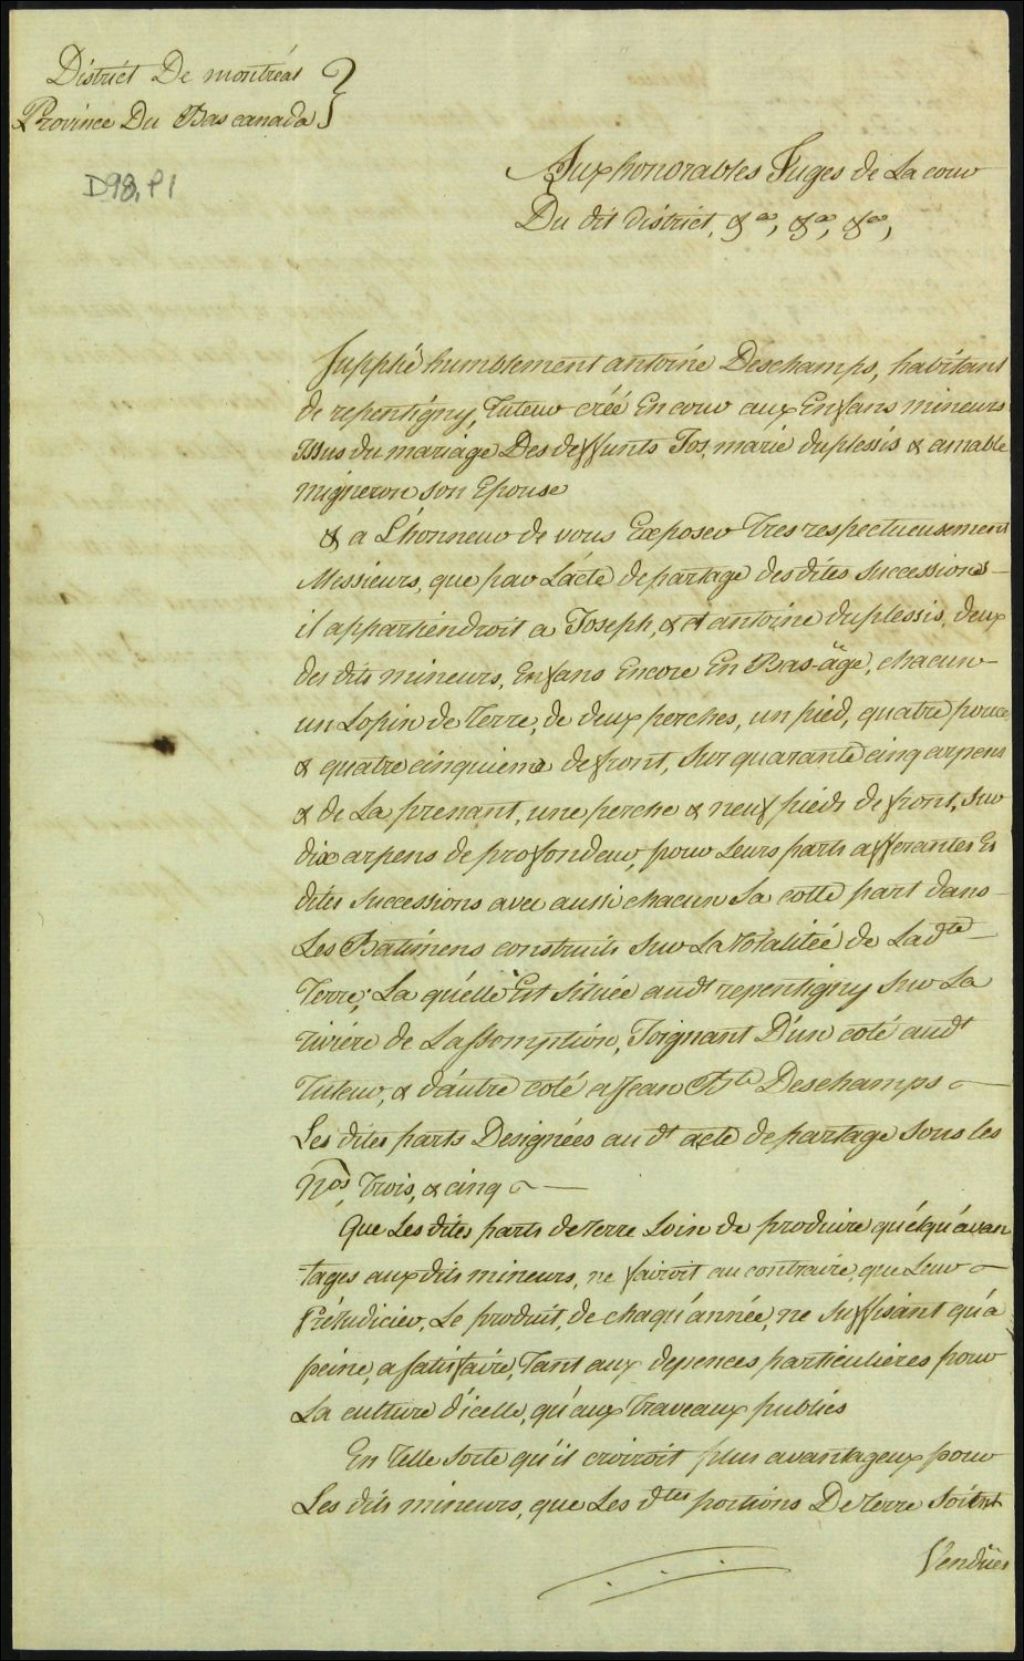 District De montréal
Province Du Bas canada
D98, P1
Aux honorables Juges de La cour
Du dit district, &ca, &ca, &ca,
Supplie humblement antoine Deschamps, habitant
de repentigny, Tuteur créé En cour aux Enfans mineurs
Issus du mariage Des deffunts Jos, marie duplessis & amable
migneron son Epouse
& a L'honneur de vous Exposer Tres respectueusement
Messieurs, que par L'acte de partage des dites Successions
il appartiendroit a Joseph, & antoine duplessis, deux
des dits mineurs, Enfans Encore En Bas-äge, chacun
un Lopin de Terre, de deux perches, un pied, quatre pouces
& quatre cinquieme de front, Sur quarante cinq arpens
& de La prenant, une perche & neuf pieds de front, Sur
dix arpens de profondeur, pour Leurs parts afferantes Es
dites Successions avec aussi chacun Sa cotte part dans
Les Batimens construits Sur La Totalitée de Ladte
Terre; La quélle Est Située audt repentigny Sur La
rivière de Lassomption, Joignant D'un coté audt
Tuteur, & dáutre coté a Jean Bte Deschamps
Les dites parts Designées au dt acte de partage Sous les
Nos, Trois, & cinq
Que Les dites parts de Terre Loin de produire quélqu'avan
tages aux dits mineurs, ne fairoit au contraire, que Leur
Préjudicier, Le produit, de chaqu'année, ne Suffisant qu'a
peine, a Satisfaire, Tant aux depences particulieres pour
La culture d'icelle, qu'aux Travaux publics
En Telle Sorte qu'il croiroit plus avantageux pour
Les dits mineurs, que Les dtes portions De Terre Soient
Vendües